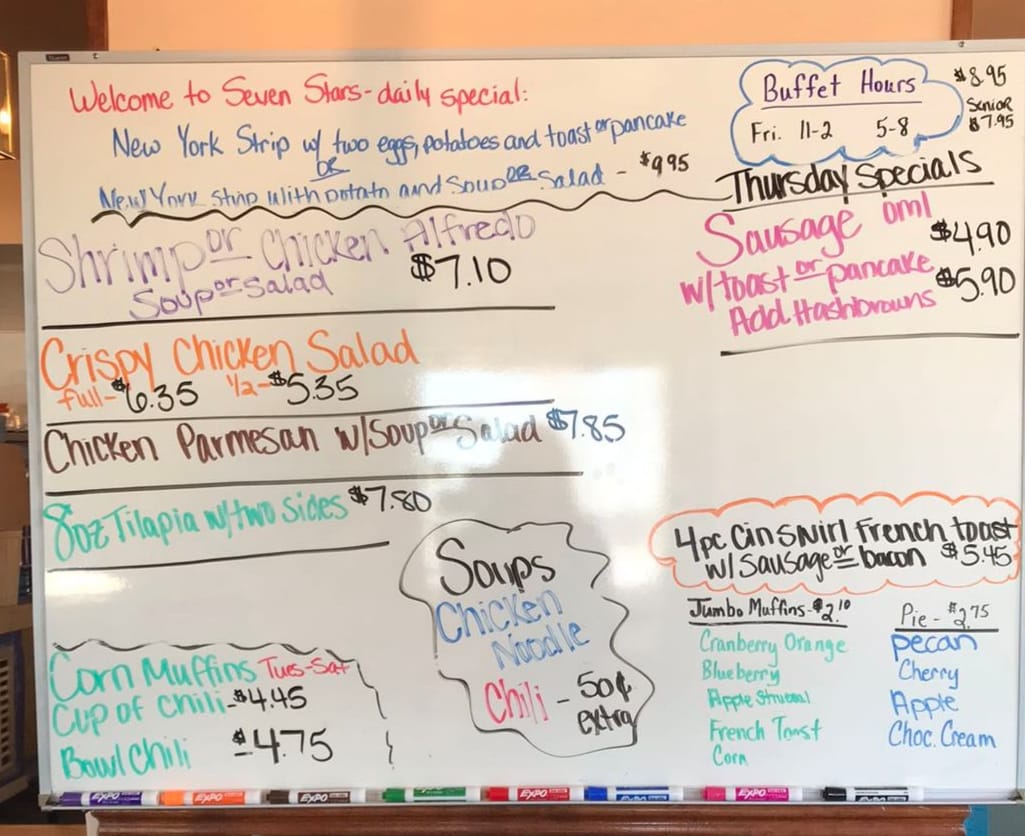 Welcome to Seven Stars-daily special:
New York Strip w/ two eggs, potatoes and toast or pancake
or
New York Strip with potato and Soup or Salad - $9.95
Shrimp or Chicken Alfredo
Soup or Salad $7.10
Crispy Chicken Salad
full-$6.35 1/2-$5.35
Chicken Parmesan w/Soup or Salad $7.85
8oz Tilapia w/two sides $7.80
Corn Muffins Tues-Sat
Cup of Chili-$4.45
Bowl Chili $4.75
Soups
Chicken
Noodle
Chili - 50¢
extra
Buffet Hours
Fri. 11-2 5-8
$8.95
Senior
$7.95
Thursday Specials
Sausage oml
$4.90
w/toast or pancake
Add Hashbrowns $5.90
4pc Cin Swirl French toast
w/ Sausage or bacon $5.45
Jumbo Muffins-$2.10
Cranberry Orange
Blueberry
Apple
French Toast
Corn
Pie - $2.75
pecan
Cherry
Apple
Choc. Cream
EXPO EXPO EXPO EXPO EXPO EXPO EXPO